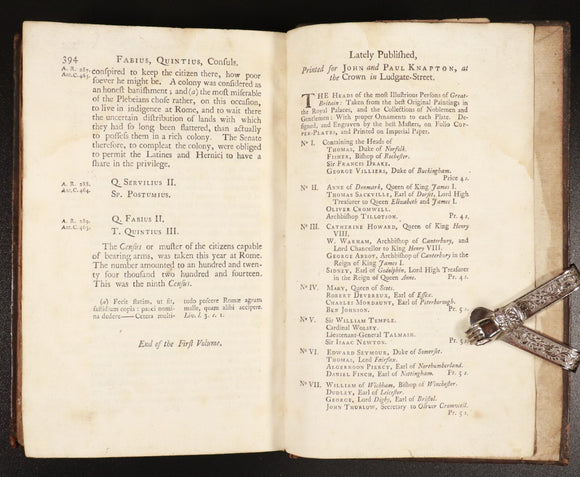 394 FABIUS, QUINTIUS, Consuls.
A. R. 287. conspired to keep the citizen there, how poor
Ant.C. 465. soever he might be. A colony was considered as
an honest banishment; and (a) the most miserable
of the Plebeians chose rather, on this occasion,
to live in indigence at Rome, and to wait there
the uncertain distribution of lands with which
they had so long been flattered, than actually
to possess them in a rich colony. The Senate
therefore, to compleat the colony, were obliged
to permit the Latines and Hernici to have a
share in the privilege.
A. R. 288. Q. SERVILIUS II.
Ant.C. 464. SP. POSTUMIUS.
A. R. 289. Q. FABIUS II,
Ant.C. 463. T. QUINTIUS III.
The Census or muster of the citizens capable
of bearing arms, was taken this year at Rome.
The number amounted to an hundred and twen-
ty four thousand two hundred and fourteen.
This was the ninth Census.
(a) Fecit statim, ut fit,
fastidium copia: pauci nomi-
na dedere—Cætera multi-
tudo poscere Romæ agrum
malle, quam alibi accipere.
Liv. l. 3. c. 1.
End of the First Volume.
Lately Published,
Printed for JOHN and PAUL KNAPTON, at
the Crown in Ludgate-Street.
THE HEADS of the most Illustrious Persons of Great-
Britain: Taken from the best Original Paintings in
the Royal Palaces, and the Collections of Noblemen and
Gentlemen: With proper Ornaments to each Plate. De-
signed, and Engraven by the best Masters, on Folio COP-
PER-PLATES, and Printed on Imperial Paper.
Nº I. Containing the Heads of
THOMAS, Duke of Norfolk.
FISHER, Bishop of Rochester.
Sir FRANCIS DRAKE.
GEORGE VILLIERS, Duke of Buckingham.
Price 4 s.
Nº II. ANNE of Denmark, Queen of King James I.
THOMAS SACKVILLE, Earl of Dorset, Lord High
Treasurer to Queen Elizabeth and James I.
OLIVER CROMWELL.
Archbishop TILLOTSON. Pr. 4 s.
Nº III. CATHERINE HOWARD, Queen of King Henry
VIII.
W. WARHAM, Archbishop of Canterbury, and
Lord Chancellor to King Henry VIII.
GEORGE ABBOT, Archbishop of Canterbury in the
Reign of King James I.
SIDNEY, Earl of Godolphin, Lord High Treasurer
in the Reign of Queen Anne. Pr. 4 s.
Nº IV. MARY, Queen of Scots.
ROBERT DEVEREUX, Earl of Essex.
CHARLES MORDAUNT, Earl of Peterborough.
BEN JOHNSON. Pr. 5 s.
Nº V. Sir WILLIAM TEMPLE.
Cardinal WOLSEY.
Lieutenant-General TALMASH.
Sir ISAAC NEWTON. Pr. 5 s.
Nº VI. EDWARD SEYMOUR, Duke of Somerset.
THOMAS, Lord Fairfax.
ALGERNOON PIERCY, Earl of Northumberland.
DANIEL FINCH, Earl of Nottingham. Pr. 5 s.
Nº VII. WILLIAM of Wickham, Bishop of Winchester.
DUDLEY, Earl of Leicester.
GEORGE, Lord Digby, Earl of Bristol.
JOHN THURLOW, Secretary to Oliver Cromwell.
Pr. 5 s.